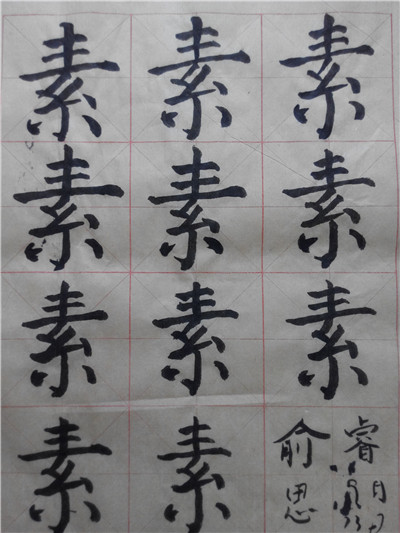 素素素
素素素
素素素
素素
俞思
睿